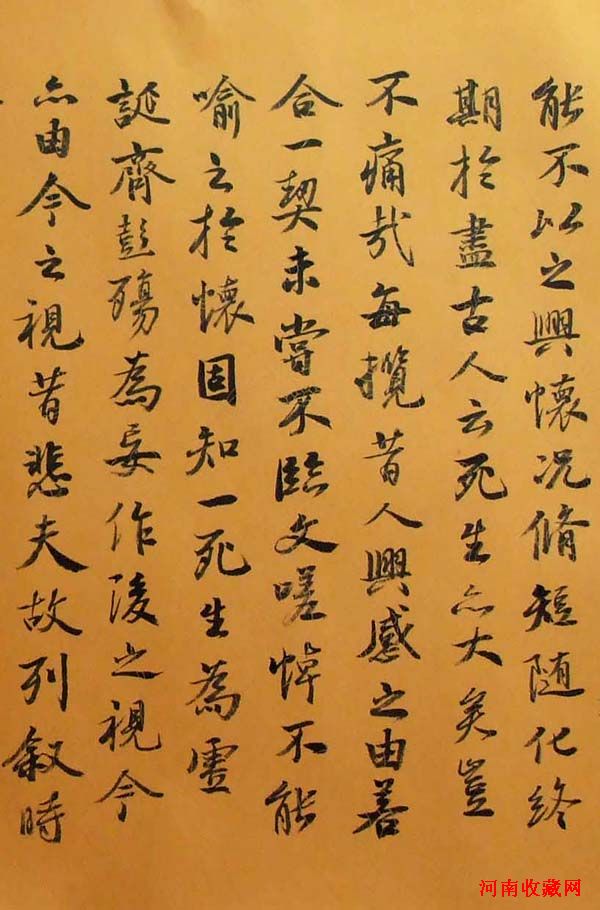 能不以之興懷况脩短随化終
期於盡古人云死生亦大矣豈
不痛哉每攬昔人興感之由若
合一契未嘗不臨文嗟悼不能
喻之於懷固知一死生為虛
誕齊彭殤為妄作後之視今
亦由今之視昔悲夫故列叙時
河南收藏网